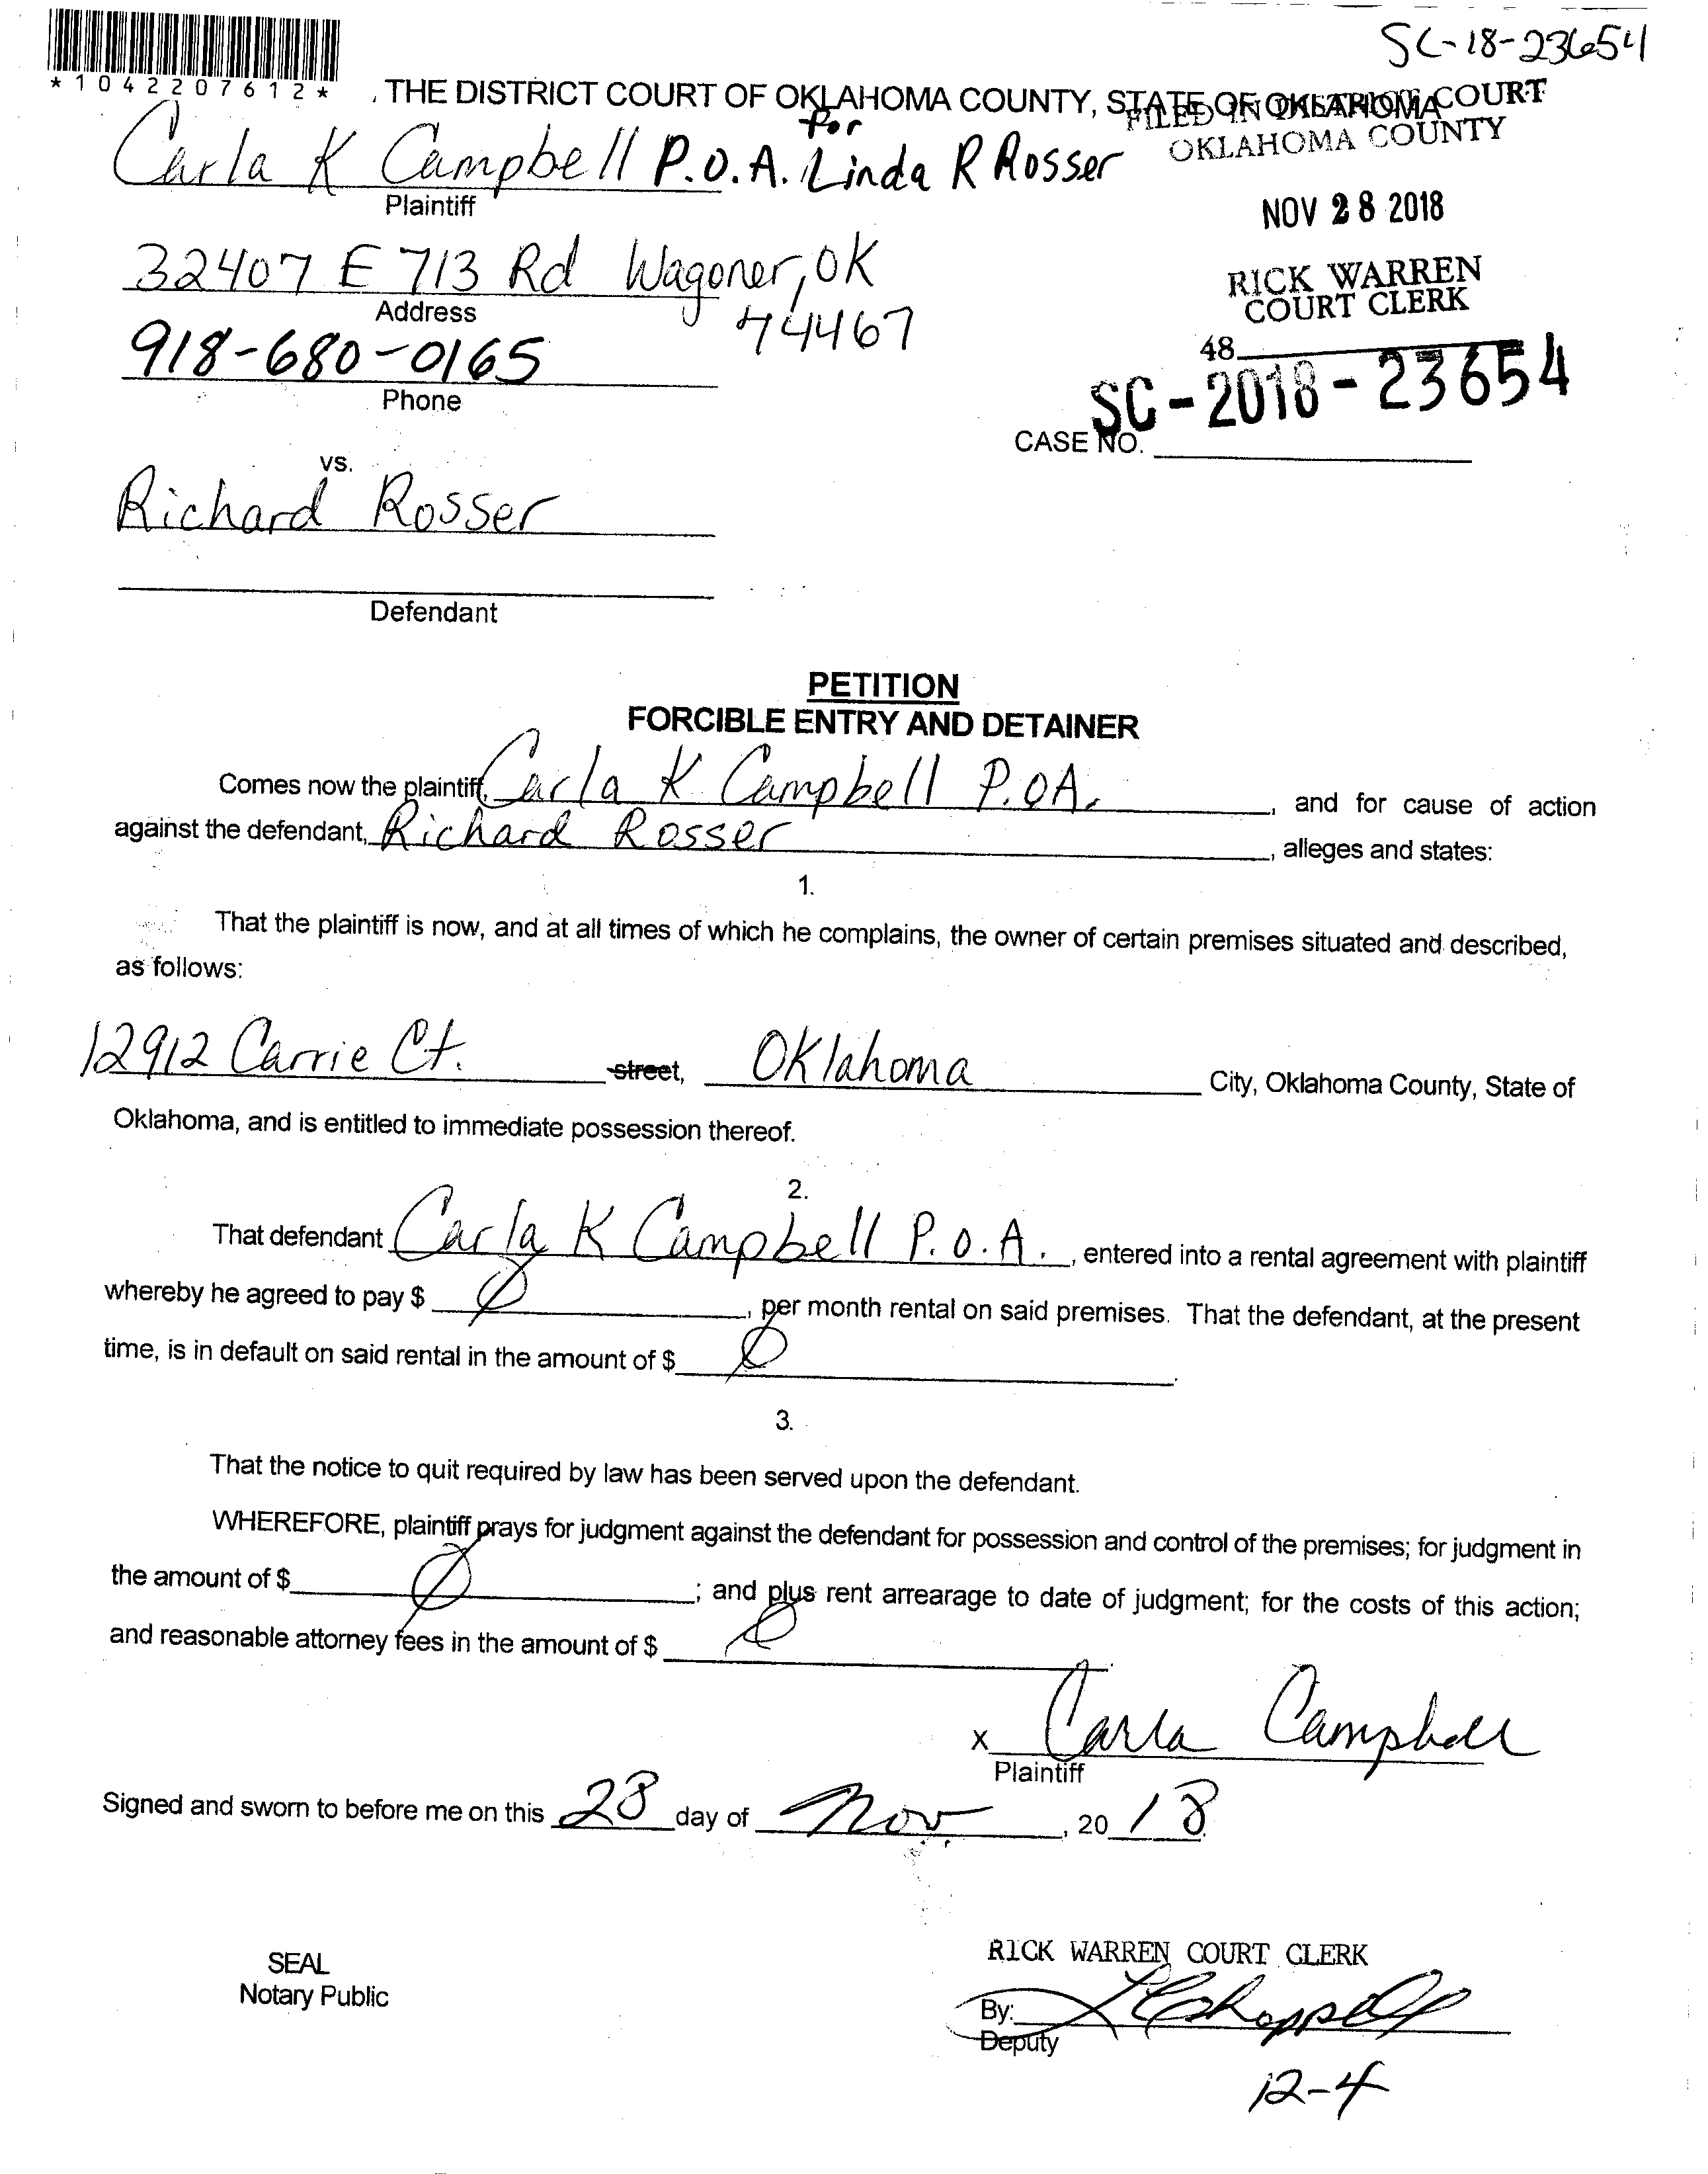 SC-18-23654
*1042207612*
, THE DISTRICT COURT OF OKLAHOMA COUNTY, STATE OF OKLAHOMA
FILED IN DISTRICT COURT
OKLAHOMA COUNTY
for
Carla K Campbell P.O.A. Linda R Rosser
Plaintiff
NOV 28 2018
32407 E 713 Rd Wagoner, OK
74467
Address
RICK WARREN
COURT CLERK
918-680-0165
Phone
48
SC-2018-23654
CASE NO.
vs.
Richard Rosser
Defendant
PETITION
FORCIBLE ENTRY AND DETAINER
Comes now the plaintiff, Carla K Campbell P.O.A., and for cause of action
against the defendant, Richard Rosser, alleges and states:
1.
That the plaintiff is now, and at all times of which he complains, the owner of certain premises situated and described,
as follows:
12912 Carrie Ct. street, Oklahoma City, Oklahoma County, State of
Oklahoma, and is entitled to immediate possession thereof.
2.
That defendant Carla K Campbell P.O.A., entered into a rental agreement with plaintiff
whereby he agreed to pay $ Ø, per month rental on said premises. That the defendant, at the present
time, is in default on said rental in the amount of $ Ø.
3.
That the notice to quit required by law has been served upon the defendant.
WHEREFORE, plaintiff prays for judgment against the defendant for possession and control of the premises; for judgment in
the amount of $ Ø; and plus rent arrearage to date of judgment; for the costs of this action;
and reasonable attorney fees in the amount of $ Ø.
x Carla Campbell
Plaintiff
Signed and sworn to before me on this 28 day of Nov, 2018.
RICK WARREN COURT CLERK
SEAL
Notary Public
By:
Deputy
12-4